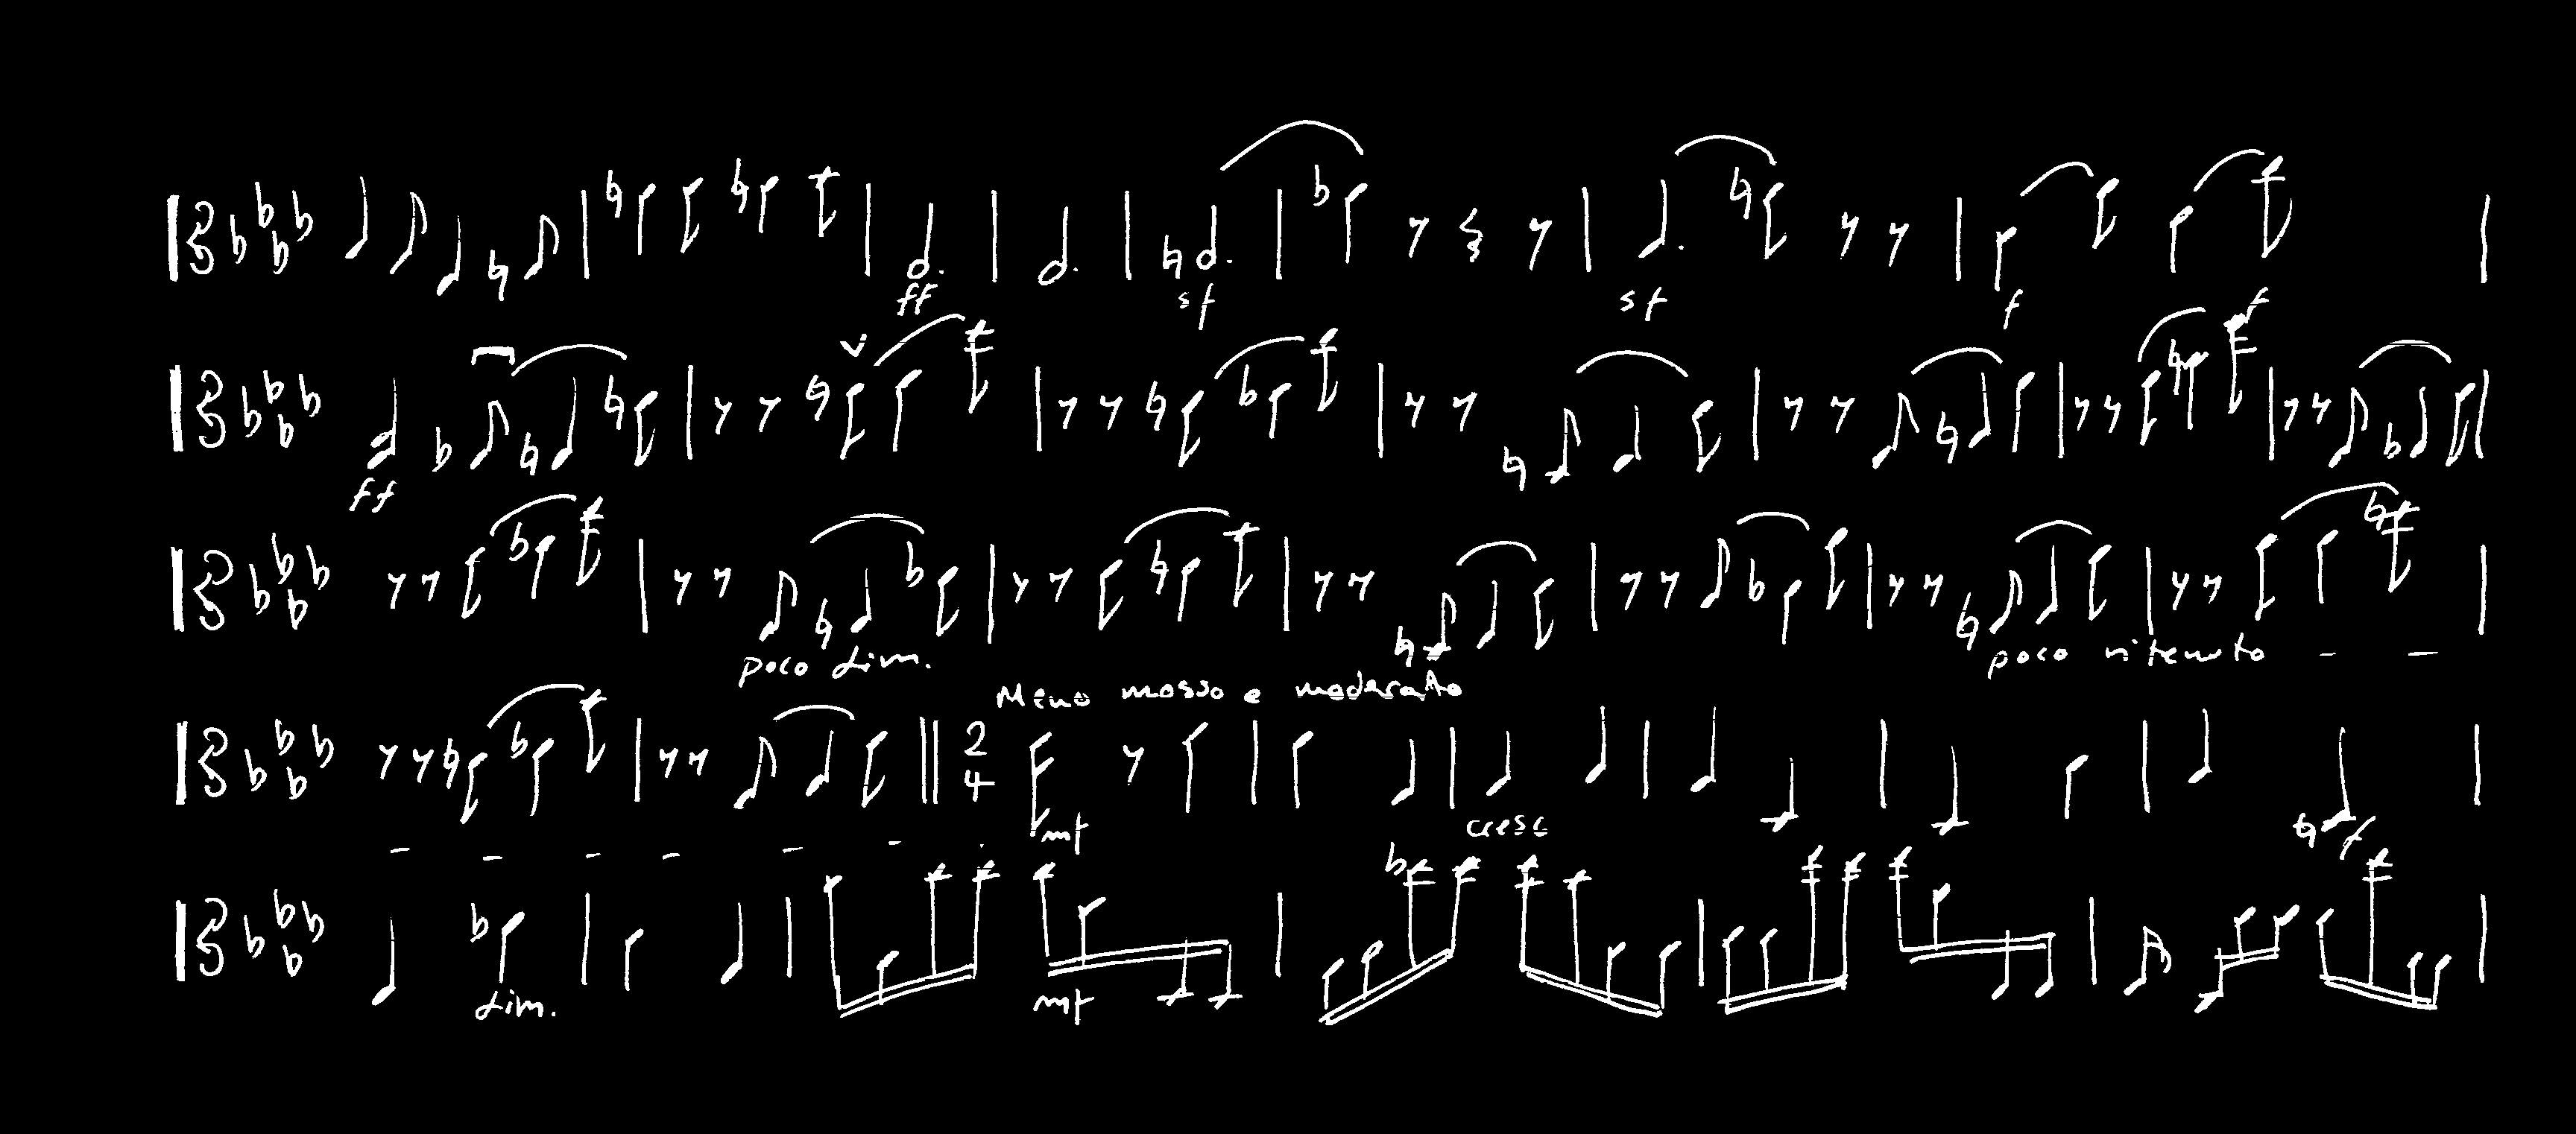 ff sf sf f f
ff
poco dim. poco ritenuto
Meno mosso e moderato
2
4
mf cresc f
dim. mf